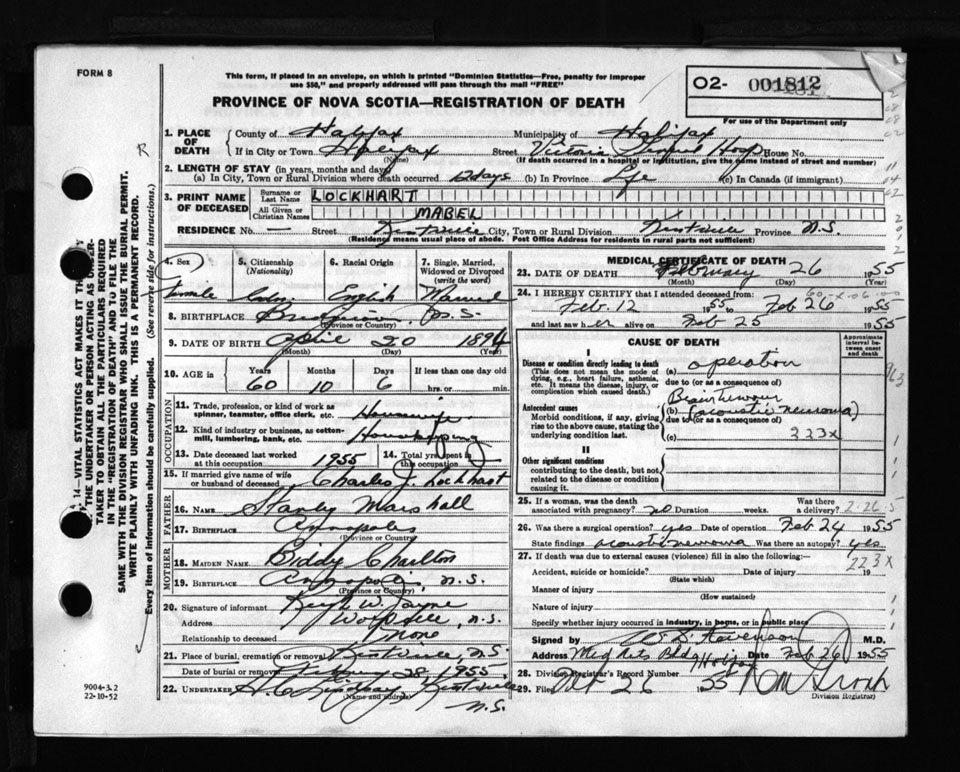 FORM 8
This form, if placed in an envelope, on which is printed "Dominion Statistics—Free, penalty for improper
use $50," and properly addressed will pass through the mail "FREE"
PROVINCE OF NOVA SCOTIA—REGISTRATION OF DEATH
02- 001812
For use of the Department only
1. PLACE OF DEATH
County of Halifax Municipality of Halifax
If in City or Town Halifax Street Victoria General Hosp House No.
(Name) (If death occurred in a hospital or institution, give the name instead of street and number)
2. LENGTH OF STAY (in years, months and days)
(a) In City, Town or Rural Division where death occurred 12 days (b) In Province Life (c) In Canada (if immigrant)
3. PRINT NAME OF DECEASED
Surname or Last Name LOCKHART
All Given or Christian Names MABEL
RESIDENCE No. — Street Kentville City, Town or Rural Division Kentville Province N.S.
(Residence means usual place of abode. Post Office Address for residents in rural parts not sufficient)
4. Sex Female
5. Citizenship (Nationality)
6. Racial Origin English
7. Single, Married, Widowed or Divorced (write the word) Married
8. BIRTHPLACE N.S.
(Province or Country)
9. DATE OF BIRTH April 20 1894
(Month) (Day) (Year)
10. AGE in Years 60 Months 10 Days 6 If less than one day old hrs. or min.
OCCUPATION
11. Trade, profession, or kind of work as spinner, teamster, office clerk, etc. Housewife
12. Kind of industry or business, as cotton-mill, lumbering, bank, etc. Housekeeping
13. Date deceased last worked at this occupation 1955
14. Total yrs. spent in this occupation
15. If married give name of wife or husband of deceased Charles J. Lockhart
FATHER
16. Name Stanley Marshall
17. Birthplace Annapolis
(Province or Country)
MOTHER
18. Maiden Name Biddy Charlton
19. Birthplace Annapolis, N.S.
(Province or Country)
20. Signature of informant W. Jayne
Address Wolfville, N.S.
Relationship to deceased None
21. Place of burial, cremation or removal Kentville, N.S.
Date of burial or removal February 28 1955
22. UNDERTAKER Lindsay, Kentville
(Name and address) N.S.
9004-3.2
22-10-52
MEDICAL CERTIFICATE OF DEATH
23. DATE OF DEATH February 26 1955
(Month) (Day) (Year)
24. I HEREBY CERTIFY that I attended deceased from:
Feb. 12 1955 to Feb 26 1955
and last saw her alive on Feb 25 1955
CAUSE OF DEATH
Approximate interval between onset and death
I
Disease or condition directly leading to death
(This does not mean the mode of dying, e.g., heart failure, asthenia, etc. It means the disease, injury, or complication which caused death.)
(a) operation
due to (or as a consequence of)
Antecedent causes
Morbid conditions, if any, giving rise to the above cause, stating the underlying condition last.
Brain tumour
(b) (acoustic neuroma)
due to (or as a consequence of)
(c) 223x
II
Other significant conditions
contributing to the death, but not related to the disease or condition causing it.
25. If a woman, was the death associated with pregnancy? no Duration weeks. Was there a delivery?
26. Was there a surgical operation? yes Date of operation Feb 24 1955
State findings acoustic neuroma Was there an autopsy? yes
27. If death was due to external causes (violence) fill in also the following:—
223X
Accident, suicide or homicide? Date of injury 19
(State which)
Manner of injury
(How sustained)
Nature of injury
Specify whether injury occurred in industry, in home, or in public place
Signed by Stevenson M.D.
Address Med Arts Bldg Halifax Date Feb 26 1955
28. Division Registrar's Record Number
29. Filed 26 1955
Division Registrar)
14—VITAL STATISTICS ACT MAKES IT THE
THE UNDERTAKER OR PERSON ACTING AS UNDER-
TAKER TO OBTAIN ALL THE PARTICULARS REQUIRED
IN THE "REGISTRATION OF DEATH" AND TO FILE THE
SAME WITH THE DIVISION REGISTRAR WHO SHALL ISSUE THE BURIAL PERMIT.
WRITE PLAINLY WITH UNFADING INK. THIS IS A PERMANENT RECORD.
Every item of information should be carefully supplied. (See reverse side for instructions.)
R